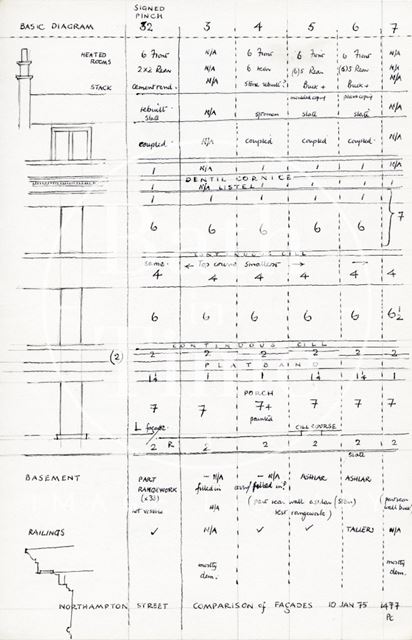 SIGNED
PINCH
BASIC DIAGRAM 32 3 4 5 6 7
HEATED ROOMS 6 Front N/A 6 Front 6 Front 6 Front N/A
2x2 Rear N/A 6 rear (6)5 Rear (6)5 Rear N/A
STACK cement rend. N/A Stone rebuilt Buck + Buck + N/A
rebuilt slate N/A slate slate N/A
coupled N/A coupled coupled coupled N/A
1 N/A 1 1 1 N/A
DENTIL CORNICE
1 N/A LISTEL 1 1 1
1 1 1 1 1
6 6 6 6 6 7
CONTINUOUS CILL
same ← Top course smallest →
4 4 4 4 4 4
6 6 6 6 6 6½
CONTINUOUS CILL
(2) 2 2 2 2 2 2
PLATBAND
1¼ 1 1 1¼ 1¼ 1
PORCH
7 7 7+ 7 7 7
painted
L façade CILL COURSE
2 R 2 2 2 2 2
slate
BASEMENT PART RANGEWORK (x3) - N/A - N/A ASHLAR ASHLAR
filled in filled in?
not visible N/A (part rear wall ashlar / rest rangework)
RAILINGS ✓ N/A ✓ ✓ TALLER N/A
mostly dem. mostly dem.
NORTHAMPTON STREET COMPARISON of FAÇADES 10 JAN 75 1477
PC